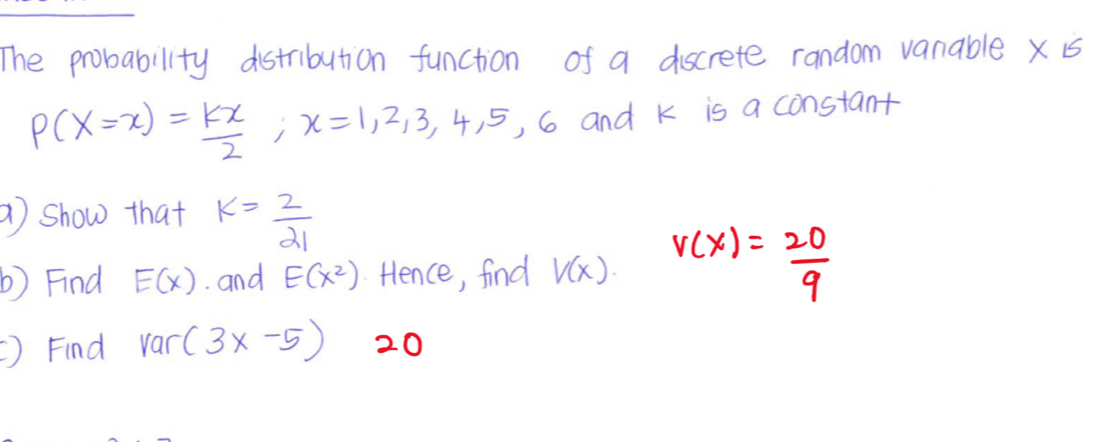 The probability distribution function of a discrete random variable x is
P(X=x) = kx/2 ; x=1,2,3, 4,5, 6 and k is a constant
a) Show that k= 2/21
b) Find E(x). and E(x²). Hence, find V(x). V(x)= 20/9
c) Find var(3x -5) 20